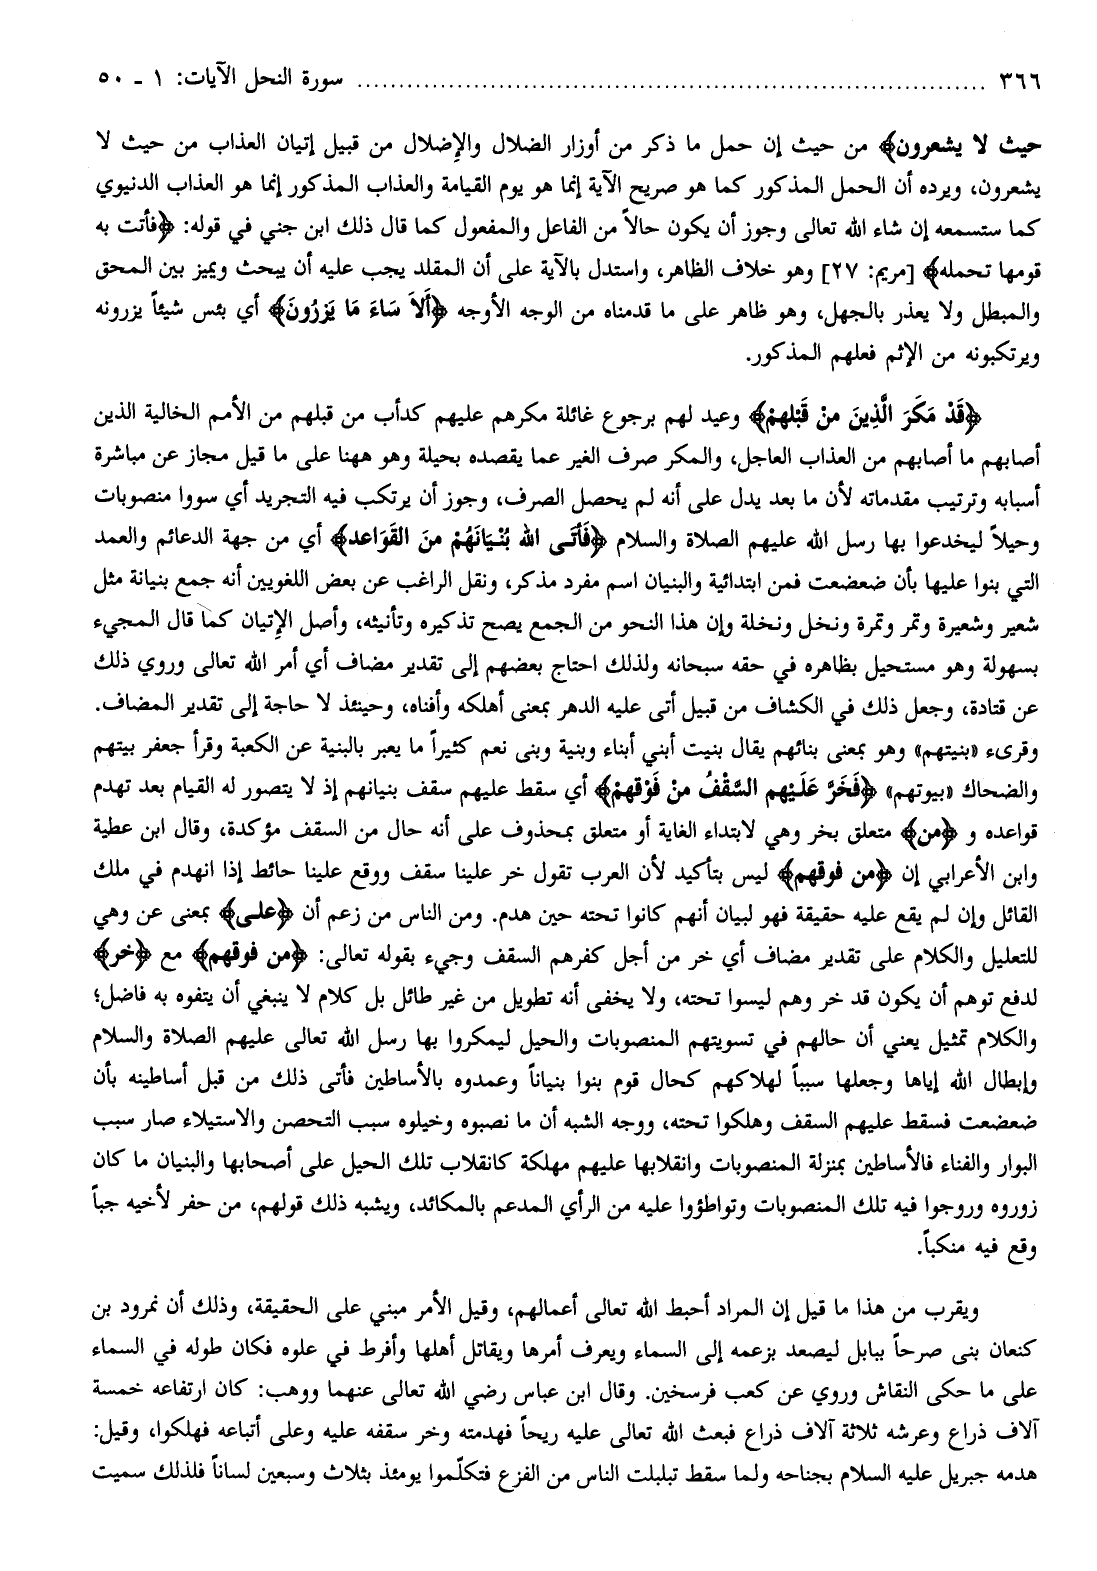 ٣٦٦ ........................................ سورة النحل الآيات: ١ ـ ٥٠
حيث لا يشعرون﴾ من حيث إن حمل ما ذكر من أوزار الضلال والإضلال من قبيل إتيان العذاب من حيث لا
يشعرون، ويرده أن الحمل المذكور كما هو صريح الآية إنما هو يوم القيامة والعذاب المذكور إنما هو العذاب الدنيوي
كما ستسمعه إن شاء الله تعالى وجوز أن يكون حالاً من الفاعل والمفعول كما قال ذلك ابن جني في قوله: ﴿فأتت به
قومها تحمله﴾ [مريم: ٢٧] وهو خلاف الظاهر، واستدل بالآية على أن المقلد يجب عليه أن يبحث ويميز بين المحق
والمبطل ولا يعذر بالجهل، وهو ظاهر على ما قدمناه من الوجه الأوجه ﴿أَلاَ سَاءَ مَا يَزرُونَ﴾ أي بئس شيئاً يزرونه
ويرتكبونه من الإثم فعلهم المذكور.
﴿قَدْ مَكَرَ الَّذِينَ منْ قَبْلهمْ﴾ وعيد لهم برجوع غائلة مكرهم عليهم كدأب من قبلهم من الأمم الخالية الذين
أصابهم ما أصابهم من العذاب العاجل، والمكر صرف الغير عما يقصده بحيلة وهو ههنا على ما قيل مجاز عن مباشرة
أسبابه وترتيب مقدماته لأن ما بعد يدل على أنه لم يحصل الصرف، وجوز أن يرتكب فيه التجريد أي سووا منصوبات
وحيلاً ليخدعوا بها رسل الله عليهم الصلاة والسلام ﴿فَأَتَى الله بُنْيَانَهُمْ منَ القَوَاعد﴾ أي من جهة الدعائم والعمد
التي بنوا عليها بأن ضعضعت فمن ابتدائية والبنيان اسم مفرد مذكر، ونقل الراغب عن بعض اللغويين أنه جمع بنيانة مثل
شعير وشعيرة وتمر وتمرة ونخل ونخلة وإن هذا النحو من الجمع يصح تذكيره وتأنيثه، وأصل الإتيان كما قال المجيء
بسهولة وهو مستحيل بظاهره في حقه سبحانه ولذلك احتاج بعضهم إلى تقدير مضاف أي أمر الله تعالى وروي ذلك
عن قتادة، وجعل ذلك في الكشاف من قبيل أتى عليه الدهر بمعنى أهلكه وأفناه، وحينئذ لا حاجة إلى تقدير المضاف.
وقرىء «بنيتهم» وهو بمعنى بنائهم يقال بنيت أبني أبناء وبنية وبنى نعم كثيراً ما يعبر بالبنية عن الكعبة وقرأ جعفر بيتهم
والضحاك «بيوتهم» ﴿فَخَرَّ عَلَيْهم السَّقْفُ منْ فَوْقهمْ﴾ أي سقط عليهم سقف بنيانهم إذ لا يتصور له القيام بعد تهدم
قواعده و ﴿من﴾ متعلق بخر وهي لابتداء الغاية أو متعلق بمحذوف على أنه حال من السقف مؤكدة، وقال ابن عطية
وابن الأعرابي إن ﴿من فوقهم﴾ ليس بتأكيد لأن العرب تقول خر علينا سقف ووقع علينا حائط إذا انهدم في ملك
القائل وإن لم يقع عليه حقيقة فهو لبيان أنهم كانوا تحته حين هدم. ومن الناس من زعم أن ﴿على﴾ بمعنى عن وهي
للتعليل والكلام على تقدير مضاف أي خر من أجل كفرهم السقف وجيء بقوله تعالى: ﴿من فوقهم﴾ مع ﴿خر﴾
لدفع توهم أن يكون قد خر وهم ليسوا تحته، ولا يخفى أنه تطويل من غير طائل بل كلام لا ينبغي أن يتفوه به فاضل؛
والكلام تمثيل يعني أن حالهم في تسويتهم المنصوبات والحيل ليمكروا بها رسل الله تعالى عليهم الصلاة والسلام
وإبطال الله إياها وجعلها سبباً لهلاكهم كحال قوم بنوا بنياناً وعمدوه بالأساطين فأتى ذلك من قبل أساطينه بأن
ضعضعت فسقط عليهم السقف وهلكوا تحته، ووجه الشبه أن ما نصبوه وخيلوه سبب التحصن والاستيلاء صار سبب
البوار والفناء فالأساطين بمنزلة المنصوبات وانقلابها عليهم مهلكة كانقلاب تلك الحيل على أصحابها والبنيان ما كان
زوروه وروجوا فيه تلك المنصوبات وتواطؤوا عليه من الرأي المدعم بالمكائد، ويشبه ذلك قولهم، من حفر لأخيه جباً
وقع فيه منكباً.
ويقرب من هذا ما قيل إن المراد أحبط الله تعالى أعمالهم، وقيل الأمر مبني على الحقيقة، وذلك أن نمرود بن
كنعان بنى صرحاً ببابل ليصعد بزعمه إلى السماء ويعرف أمرها ويقاتل أهلها وأفرط في علوه فكان طوله في السماء
على ما حكى النقاش وروي عن كعب فرسخين. وقال ابن عباس رضي الله تعالى عنهما ووهب: كان ارتفاعه خمسة
آلاف ذراع وعرشه ثلاثة آلاف ذراع فبعث الله تعالى عليه ريحاً فهدمته وخر سقفه عليه وعلى أتباعه فهلكوا، وقيل:
هدمه جبريل عليه السلام بجناحه ولما سقط تبلبلت الناس من الفزع فتكلّموا يومئذ بثلاث وسبعين لساناً فلذلك سميت